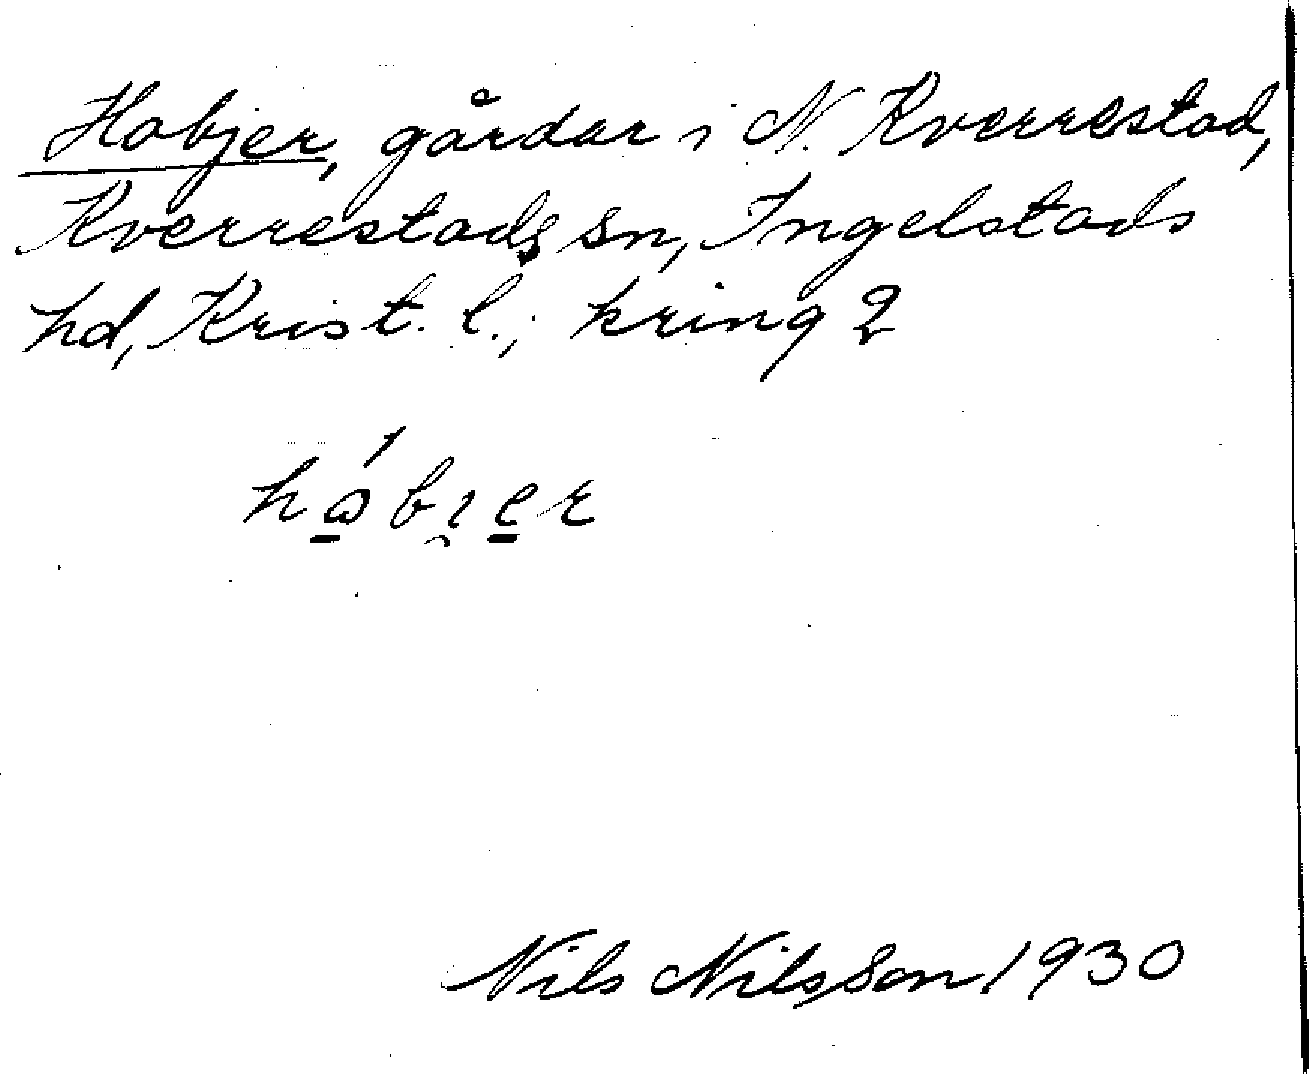 Hobjer, gårdar i N. Kverrestad,
Kverrestads sn, Ingelstads
hd, Krist. l.; kring 2
Nils Nilsson 1930